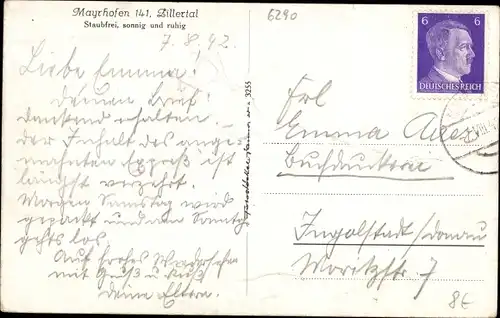 Mayrhofen 141, Zillertal
Staubfrei, sonnig und ruhig
7.8.42.
6290
Liebe Emma!
Deinen Brief
dankend erhalten.
Der Inhalt des ange-
mahnten Expreß ist
längst verzehrt.
Morgen Samstag wird
gepackt und am Sonntg
gehts los.
Auf frohes Wiedersehen
mit Gruß u. Kuß
deine Eltern.
3255
6 6
DEUTSCHES REICH
Frl
Emma
Buchdruckerei
Ingolstadt/Donau
Moritzstr. 7
8€